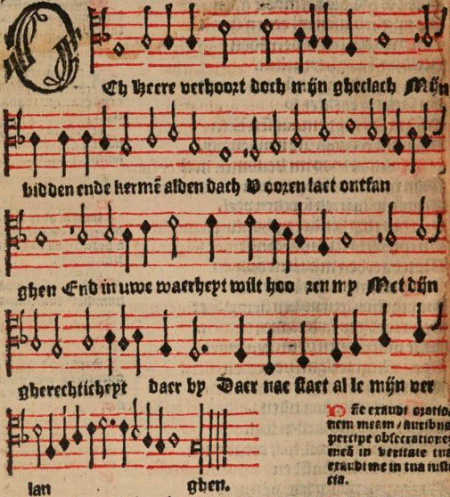 Och Heere verhoort doch mijn gheclach Mijn
bidden ende kermē alden dach V ooren laet ontfan
ghen End in uwe waerheyt wilt hoo ren my Met dijn
gherechticheyt daer by Daer nae staet al le mijn ver
lan ghen.
Dn̄e exaudi oratio,
nem meam / auribus
percipe obsecratione
meā in veritate tua
exaudi me in tua iusti
cia.